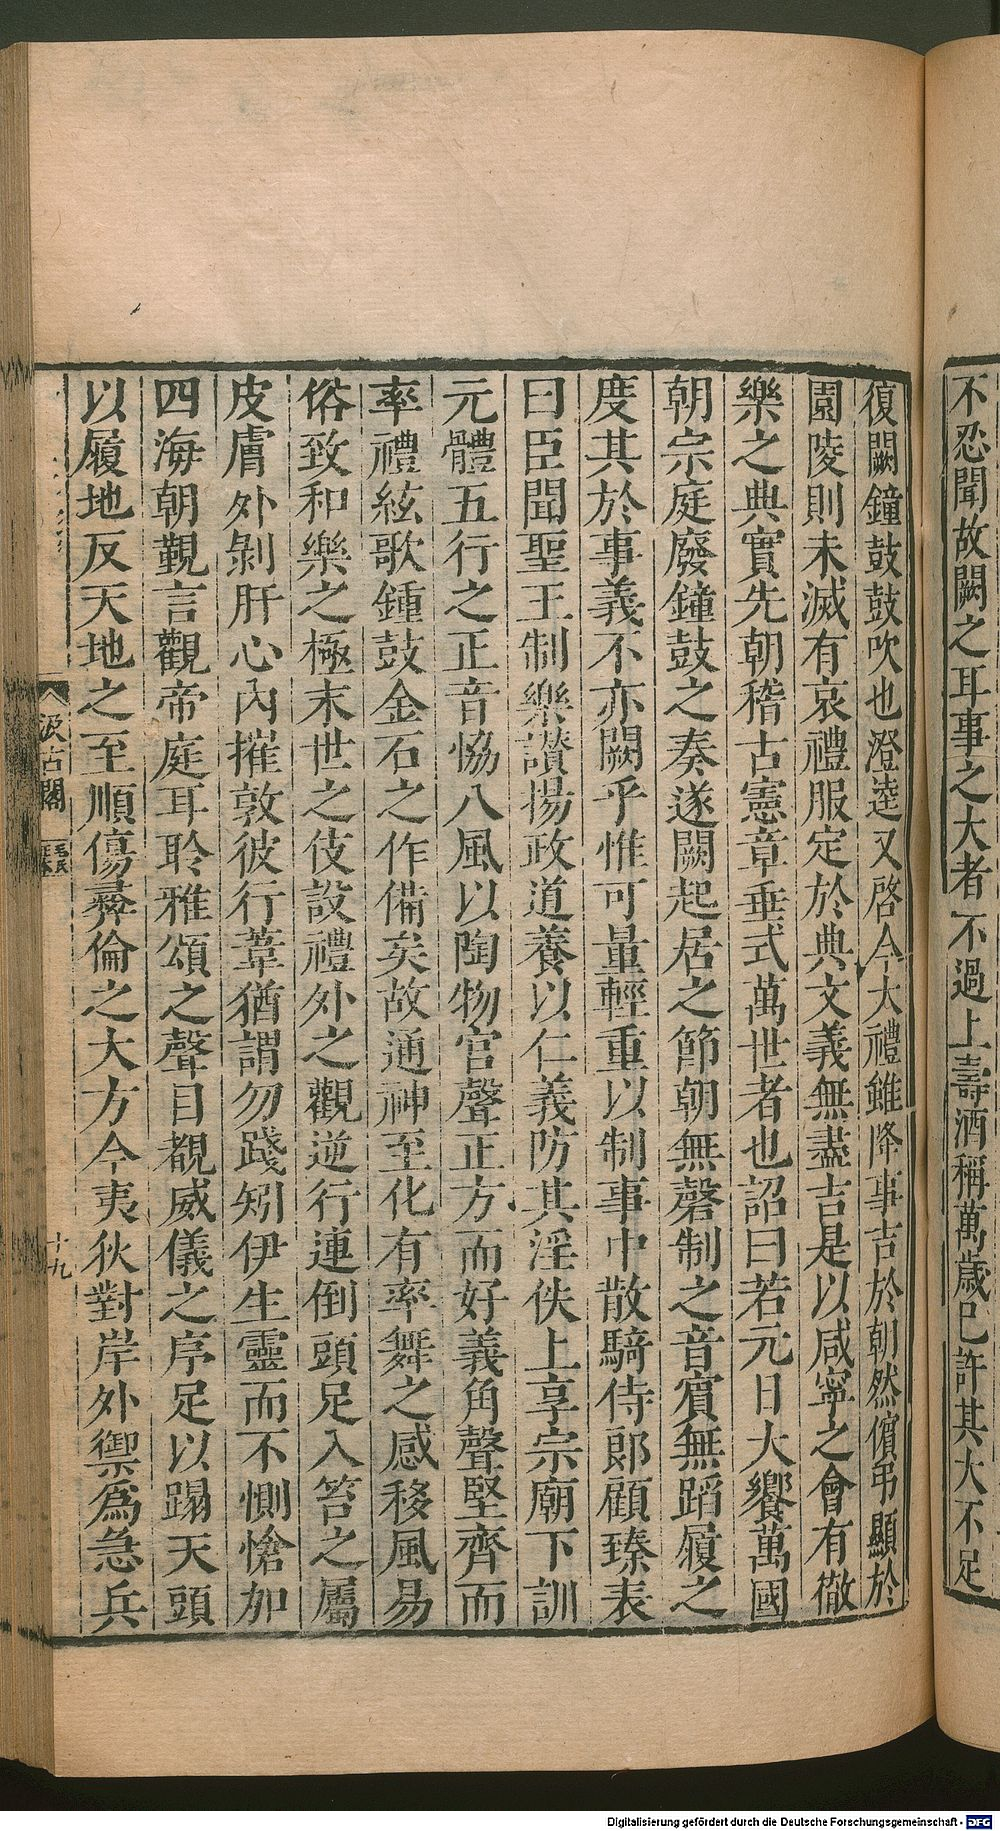 不忍聞故闕之耳事之大者不過上壽酒稱萬歲已許其大不足
復闕鐘鼓鼓吹也澄逵又啓今大禮雖降事吉於朝然儐弔顯於
園陵則未滅有哀禮服定於典文義無盡吉是以咸寧之會有徹
樂之典實先朝稽古憲章垂式萬世者也詔曰若元日大饗萬國
朝宗庭廢鐘鼓之奏遂闕起居之節朝無磬制之音賓無蹈履之
度其於事義不亦闕乎惟可量輕重以制事中散騎侍郎顧臻表
曰臣聞聖王制樂讃揚政道養以仁義防其淫佚上享宗廟下訓
元體五行之正音恊八風以陶物宮聲正方而好義角聲堅齊而
率禮絃歌鍾鼓金石之作備矣故通神至化有率舞之感移風易
俗致和樂之極末世之伎設禮外之觀逆行連倒頭足入筥之屬
皮膚外剝肝心內摧敦彼行葦猶謂勿踐矧伊生靈而不惻愴加
四海朝覲言觀帝庭耳聆雅頌之聲目覩威儀之序足以蹋天頭
以履地反天地之至順傷彝倫之大方今夷狄對岸外禦爲急兵
汲古閣
毛氏
正本
十九
Digitalisierung gefördert durch die Deutsche Forschungsgemeinschaft - DFG